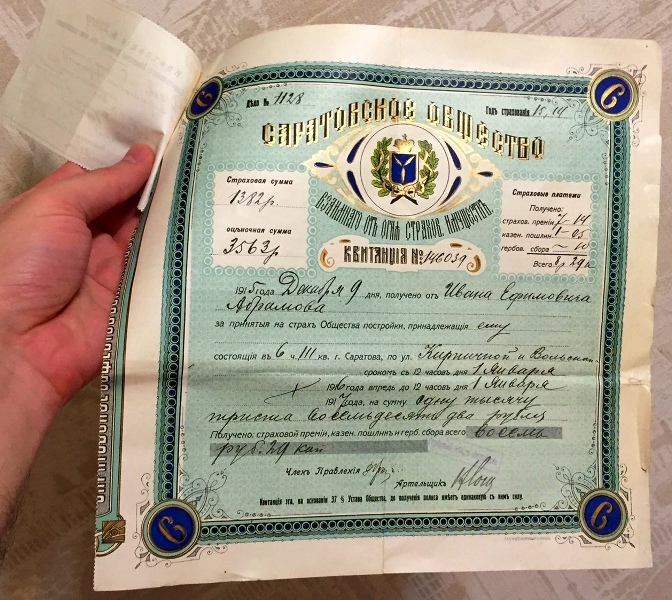 Дѣло № 1128
Годъ страхованія 15, 14
САРАТОВСКОЕ ОБЩЕСТВО
ВЗАИМНАГО ОТЪ ОГНЯ СТРАХОВ. ИМУЩЕСТВЪ
Страховая сумма
1382 р.
оцѣночная сумма
3563 р
Страховые платежи
Получено:
страхов. преміи 7-14
казен. пошлин 1-05
гербов. сбора - 10
Всего 8 р 29 к
КВИТАНЦІЯ № 146039
1915 года Декабря 9 дня, получено отъ Ивана Ефимовича
Абрамова
за принятыя на страхъ Общества постройки, принадлежащія ему
состоящія въ 6 ч. III кв. г. Саратова, по ул. Кирпичной и Вольской
срокомъ съ 12 часовъ дня 1 Января
1916 года впредь до 12 часовъ дня 1 Января
1917 года, на сумму одну тысячу
триста восемьдесятъ два рубля
Получено: страховой преміи, казен. пошлинъ и герб. сбора всего восемь
руб. 29 коп
Членъ Правленія
Артельщикъ
Квитанція эта, на основаніи 37 § Устава Общества, до полученія полиса имѣетъ одинаковую съ нимъ силу.
С
С
С
С